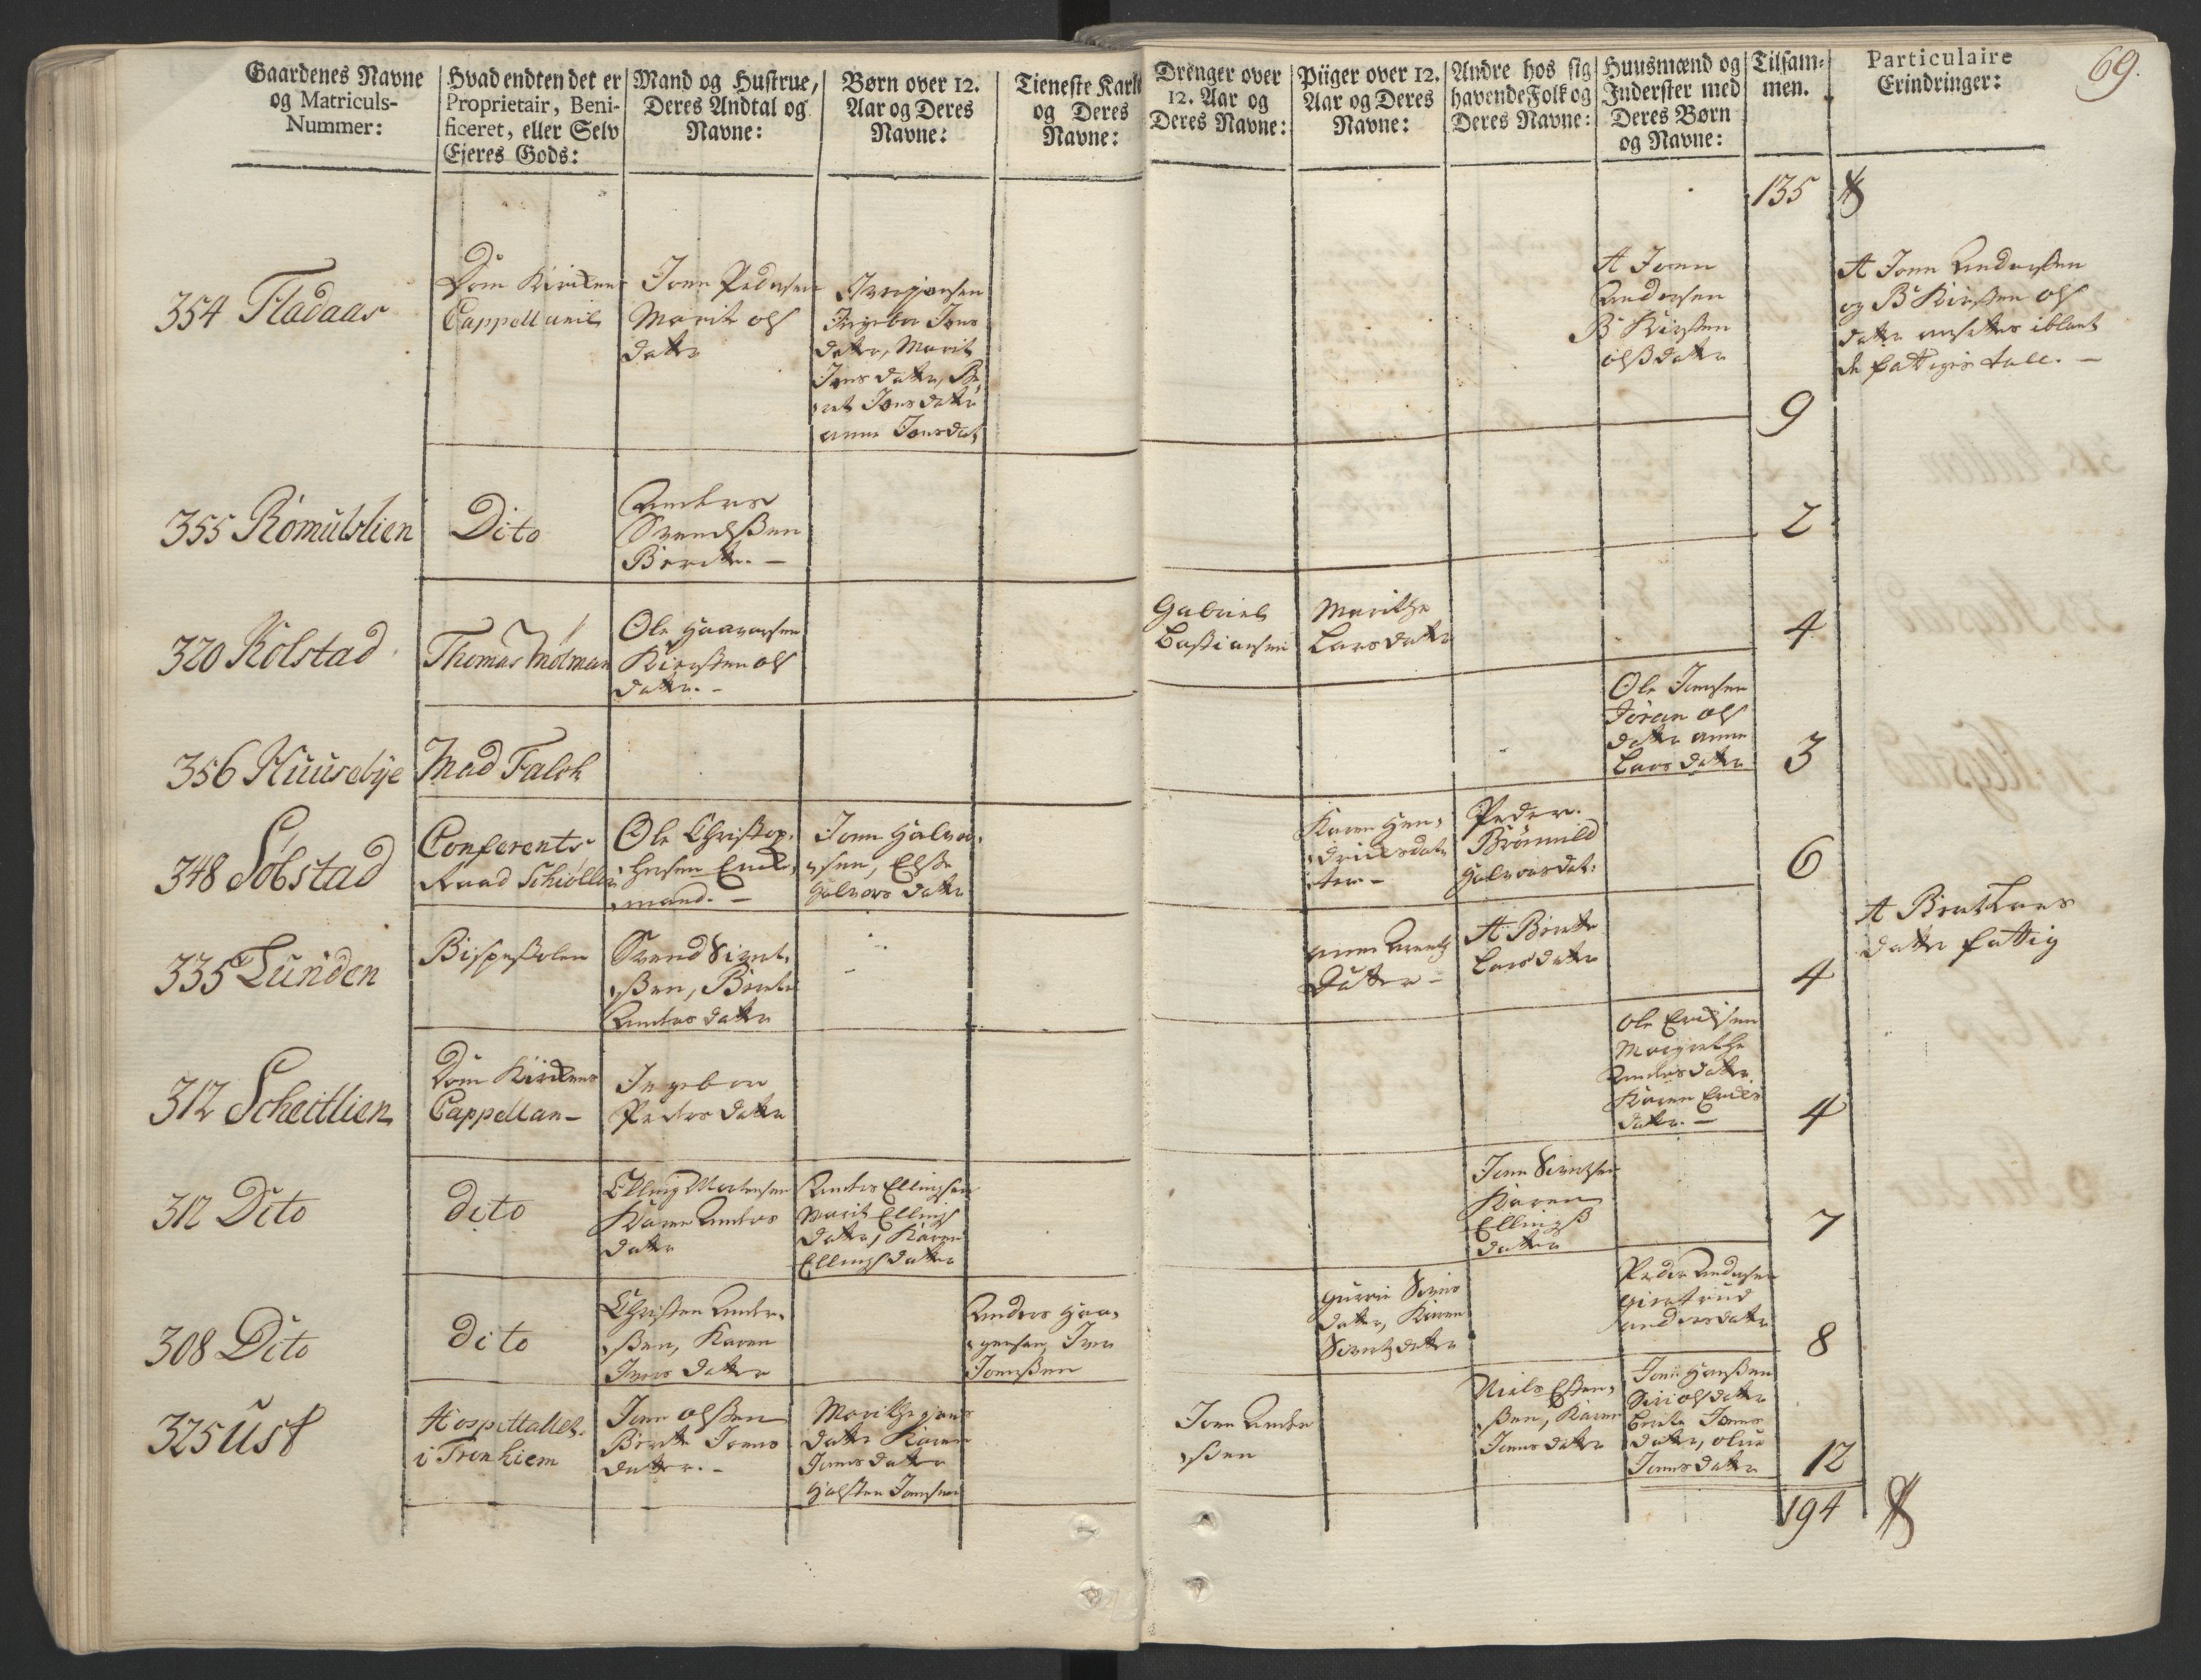 Gaardenes Navne
og Matriculs-
Nummer:
Hvad endten det er
Proprietair, Beni-
ficeret, eller Selv
Ejeres Gods:
Mand og Hustrue,
Deres Andtal og
Navne:
Børn over 12.
Aar og Deres
Navne:
Tieneste Karle
og Deres
Navne:
Drenger over
12. Aar og
Deres Navne:
Piiger over 12.
Aar og Deres
Navne:
Andre hos sig
havende Folk og
Deres Navne:
Huusmænd og
Inderster med
Deres Børn
og Navne:
Tilsam-
men.
Particulaire
Erindringer:
69.
135
354 Fladaas
Dom Kirkens
Cappell
Jonn Pedersen
Marit ols
datter
Ingebor Jons
datter, Marit
Jons datter, Be,
ret Jons datter
anne Jonsdat
A Jonn
Andersen
B Kirsten
olsdatter
9
A Jonn Andersen
og B Kirsten ols
datter ansettes iblant
de fattiges tall. -
355 Romulslien
Dito
Anders
Svendsen
Beret. -
2
320 Kolstad
Thomas Molman
Ole Haavarsen
Kirsten ols
datter. -
Gabriel
Bastiansen
Marithe
Larsdatter
4
356 Huusebye
Mad Falch
Ole Jonsen
Jøran ols
datter anne
Larsdatter
3
348 Sobstad
Conferents
Raad Schiøller
Ole Christop,
hersen Enke,
mand. -
Jonn Halvor,
sen, Else
Halvors datter
Karen Hen,
drichsdat
ter -
Peder.
Brønnild
Halvorsdat:
6
335 Lunden
Bispestolen
Svend Sivert,
sen, Berete
Anders datter
anne Arentz
Datter -
A Berete
Larsdatter
4
A Beret Lars
datter fattig
312 Scheitlien
Dom Kirkens
Cappellan -
Ingebor
Peders datter
Ole Erichsen
Margrethe
Andersdatter
Karen Erichs
datter. -
4
312 Dito
dito
Elling Mortensen
Karen Anders
datter
Anders Ellingsen
Marit Ellings
datter, Karen
Ellingsdatter
Jonn Sivertsen
Karen
Ellings
datter
7
308 Dito
dito
Christen Ander,
sen, Karen
Ivers datter
Anders Haa,
gensen, Iver
Jonsen
Gurrie Sivers
datter, Karen
Sivertzdatter
Peder Andersen
giertrud
andersdatter
8
325 Ust
Hospitallet
i Tronhiem
Jonn olsen
Berete Jons
datter. -
Marithe Jons
datter Karen
Jonsdatter
Halsten Jonsen
Jonn Ander
sen
Niels Esten,
sen, Karen
Jonsdatter
Jonn Hansen
Siri olsdatter
Berete Jons
datter, oline
Jonsdatter
12
194